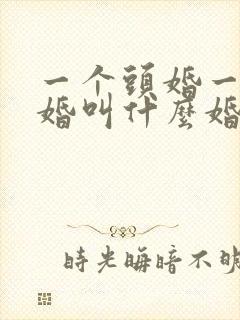 一个頭婚一
婚叫什麼婚
時光晦暗不明